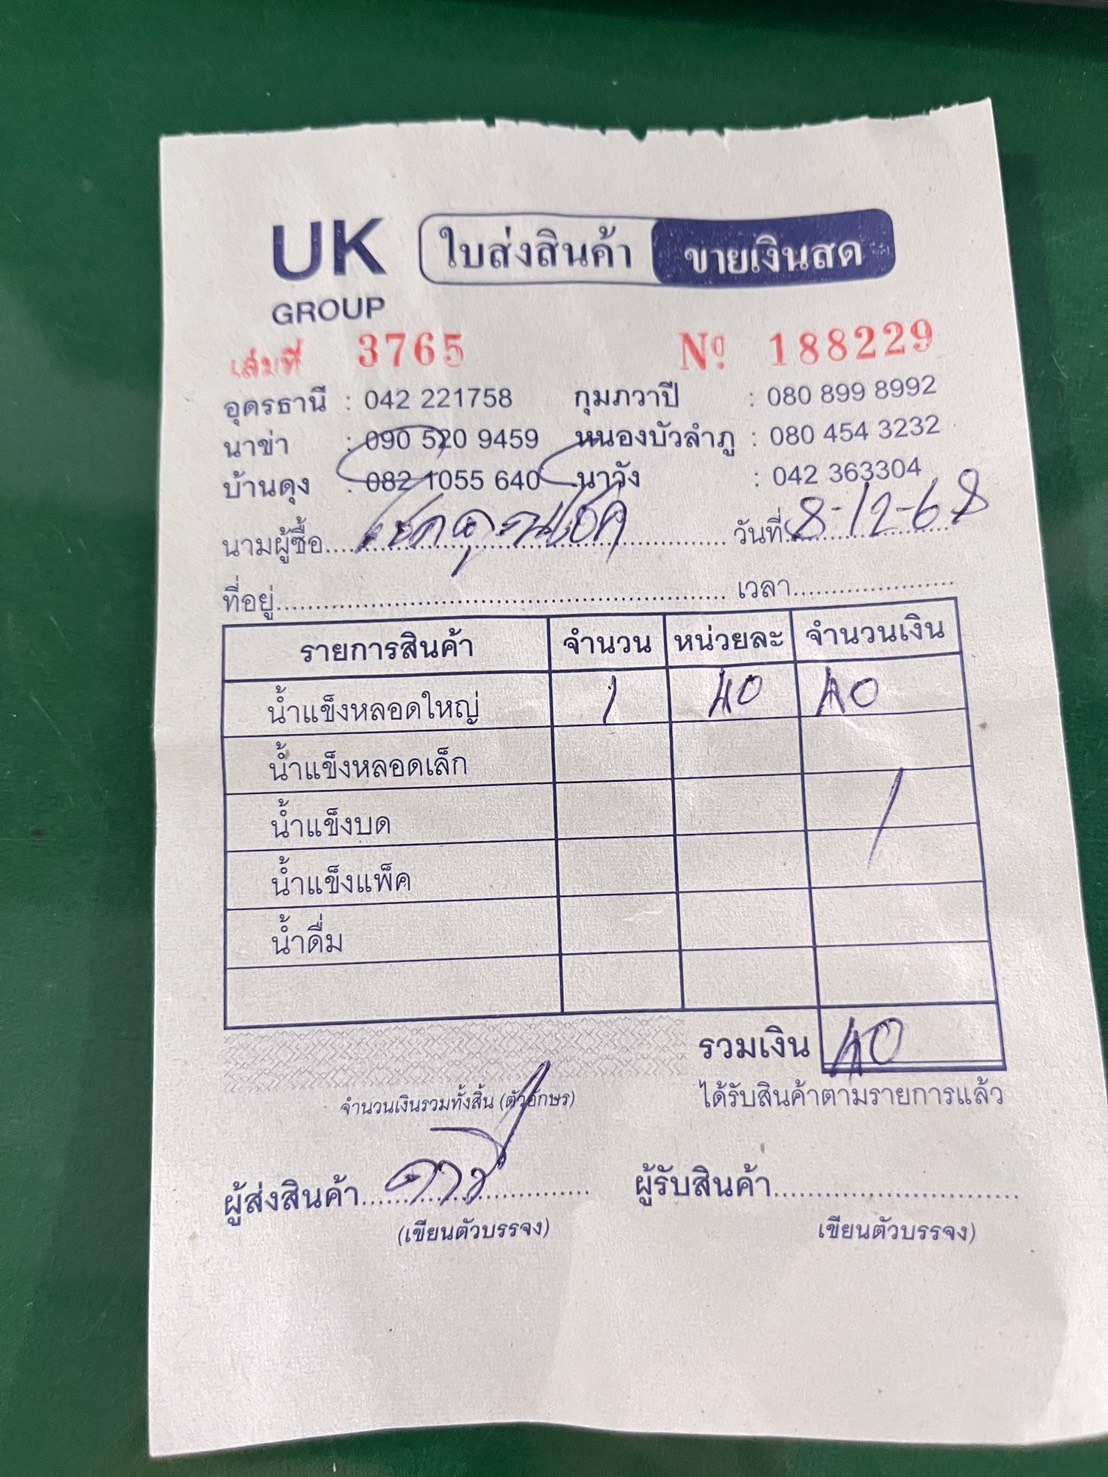 UK
GROUP
ใบส่งสินค้า ขายเงินสด
เล่มที่ 3765 Nº 188229
อุดรธานี : 042 221758 กุมภวาปี : 080 899 8992
นาข่า : 090 520 9459 หนองบัวลำภู : 080 454 3232
บ้านดุง : 082 1055 640 นาวัง : 042 363304
นามผู้ซื้อ วันที่ 8-12-68
ที่อยู่ เวลา
รายการสินค้า จำนวน หน่วยละ จำนวนเงิน
น้ำแข็งหลอดใหญ่ 1 40 40
น้ำแข็งหลอดเล็ก
น้ำแข็งบด
น้ำแข็งแพ็ค
น้ำดื่ม
รวมเงิน 40
จำนวนเงินรวมทั้งสิ้น (ตัวอักษร) ได้รับสินค้าตามรายการแล้ว
ผู้ส่งสินค้า ผู้รับสินค้า
(เขียนตัวบรรจง) เขียนตัวบรรจง)